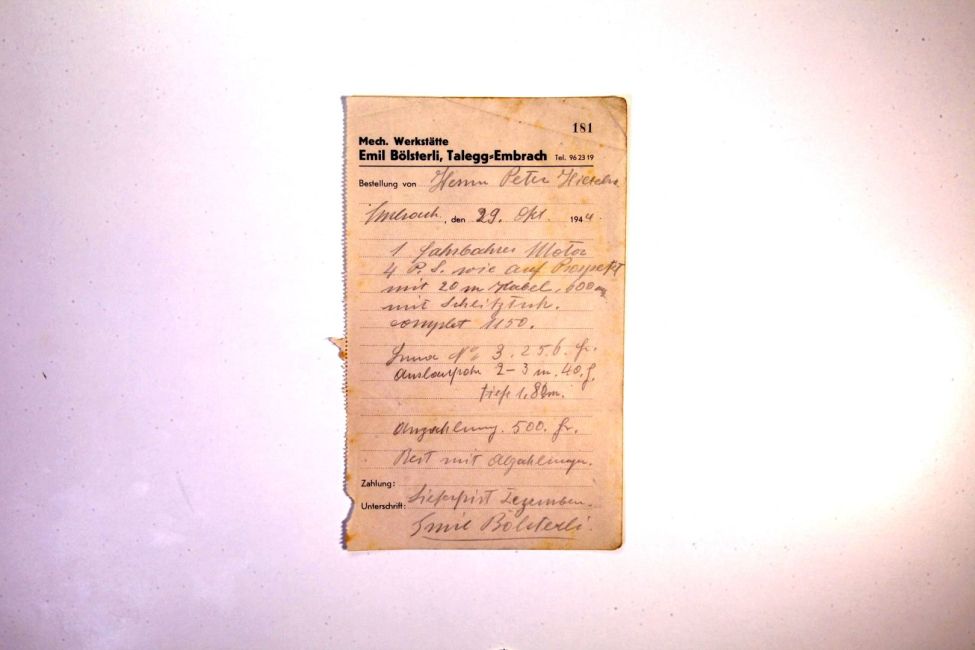 181
Mech. Werkstätte
Emil Bölsterli, Talegg=Embrach Tel. 96 23 19
Bestellung von Herrn Peter
Embrach, den 29. Okt. 1944.
1 fahrbahrer Motor
4 P.S. wie auf Prospekt
mit 20 m Kabel, 600 m
mit
complet 1150.
No 3. 256. fr.
Auslaufrohr 2-3 m. 40 f.
tiefe 1.80m.
Anzahlung. 500. fr.
Rest mit Abzahlungen.
Zahlung:
Lieferfrist Dezember.
Unterschrift:
Emil Bölsterli